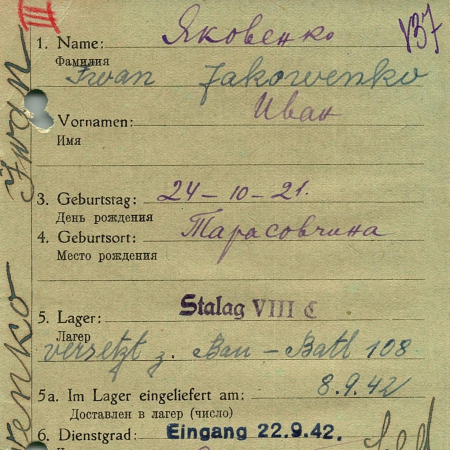 III
V37
1. Name: Яковенко
Фамилия
Iwan Jakowenko
Vornamen: Иван
Имя
3. Geburtstag: 24-10-21.
День рождения
4. Geburtsort: Тарасовчина
Место рождения
5. Lager: Stalag VIII C
Лагер
versetzt z. Bau-Batl 108
5a. Im Lager eingeliefert am: 8.9.42
Доставлен в лагер (число)
6. Dienstgrad: Eingang 22.9.42.
Iwan
enko